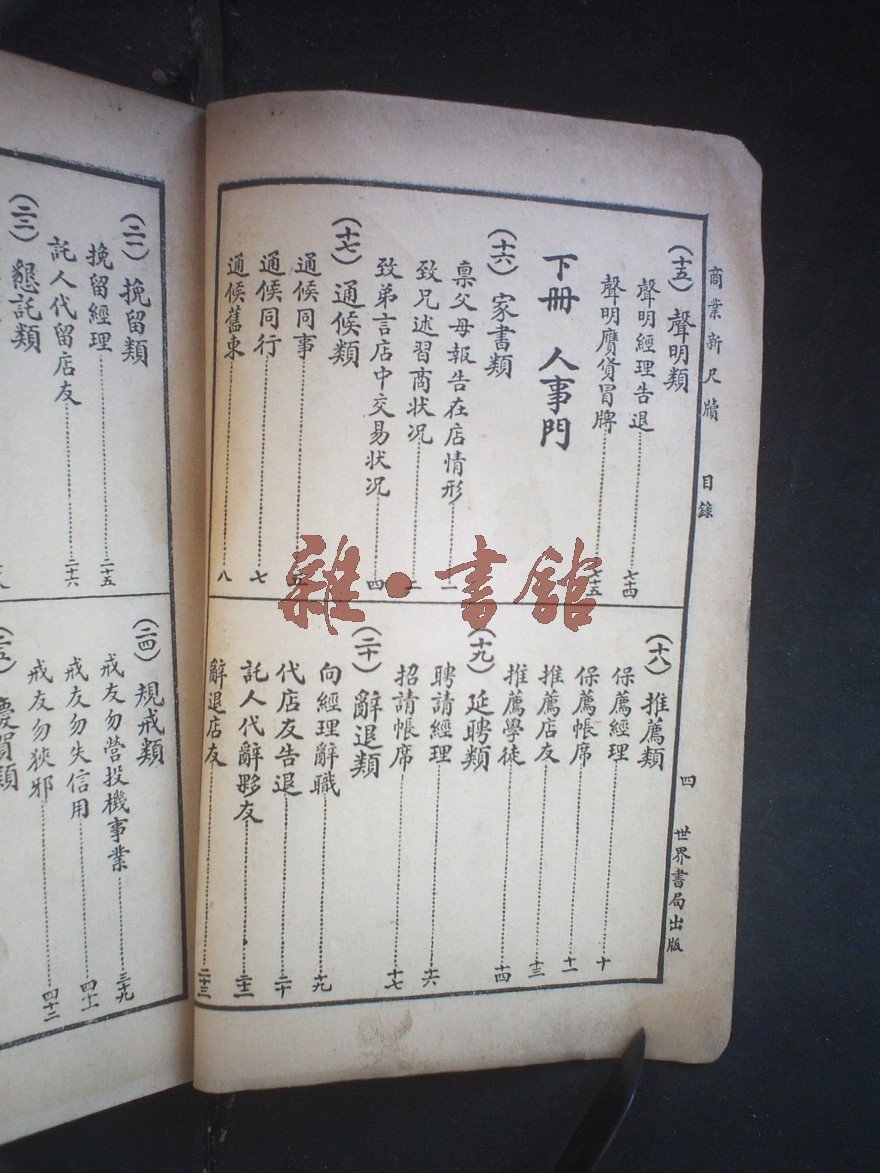 商業新尺牘
目錄
四
世界書局出版
（十五）聲明類
聲明經理告退 七十四
聲明贋貨冒牌 七十五
下冊 人事門
（十六）家書類
禀父母報告在店情形 一
致兄述習商狀况
致弟言店中交易狀况 四
（十七）通候類
通候同事
通候同行 七
通候舊東 八
（十八）推薦類
保薦經理 十
保薦帳席 十一
推薦店友 十三
推薦學徒 十四
（十九）延聘類
聘請經理 十六
招請帳席 十七
（二十）辭退類
向經理辭職 十九
代店友告退 二十
託人代辭夥友
辭退店友 二十三
（二一）挽留類
挽留經理 二十五
託人代留店友 二十六
（二二）懇託類
（二四）規戒類
戒友勿營投機事業 三十九
戒友勿失信用 四十一
戒友勿狹邪 四十二
（二五）慶賀類
雜·書館